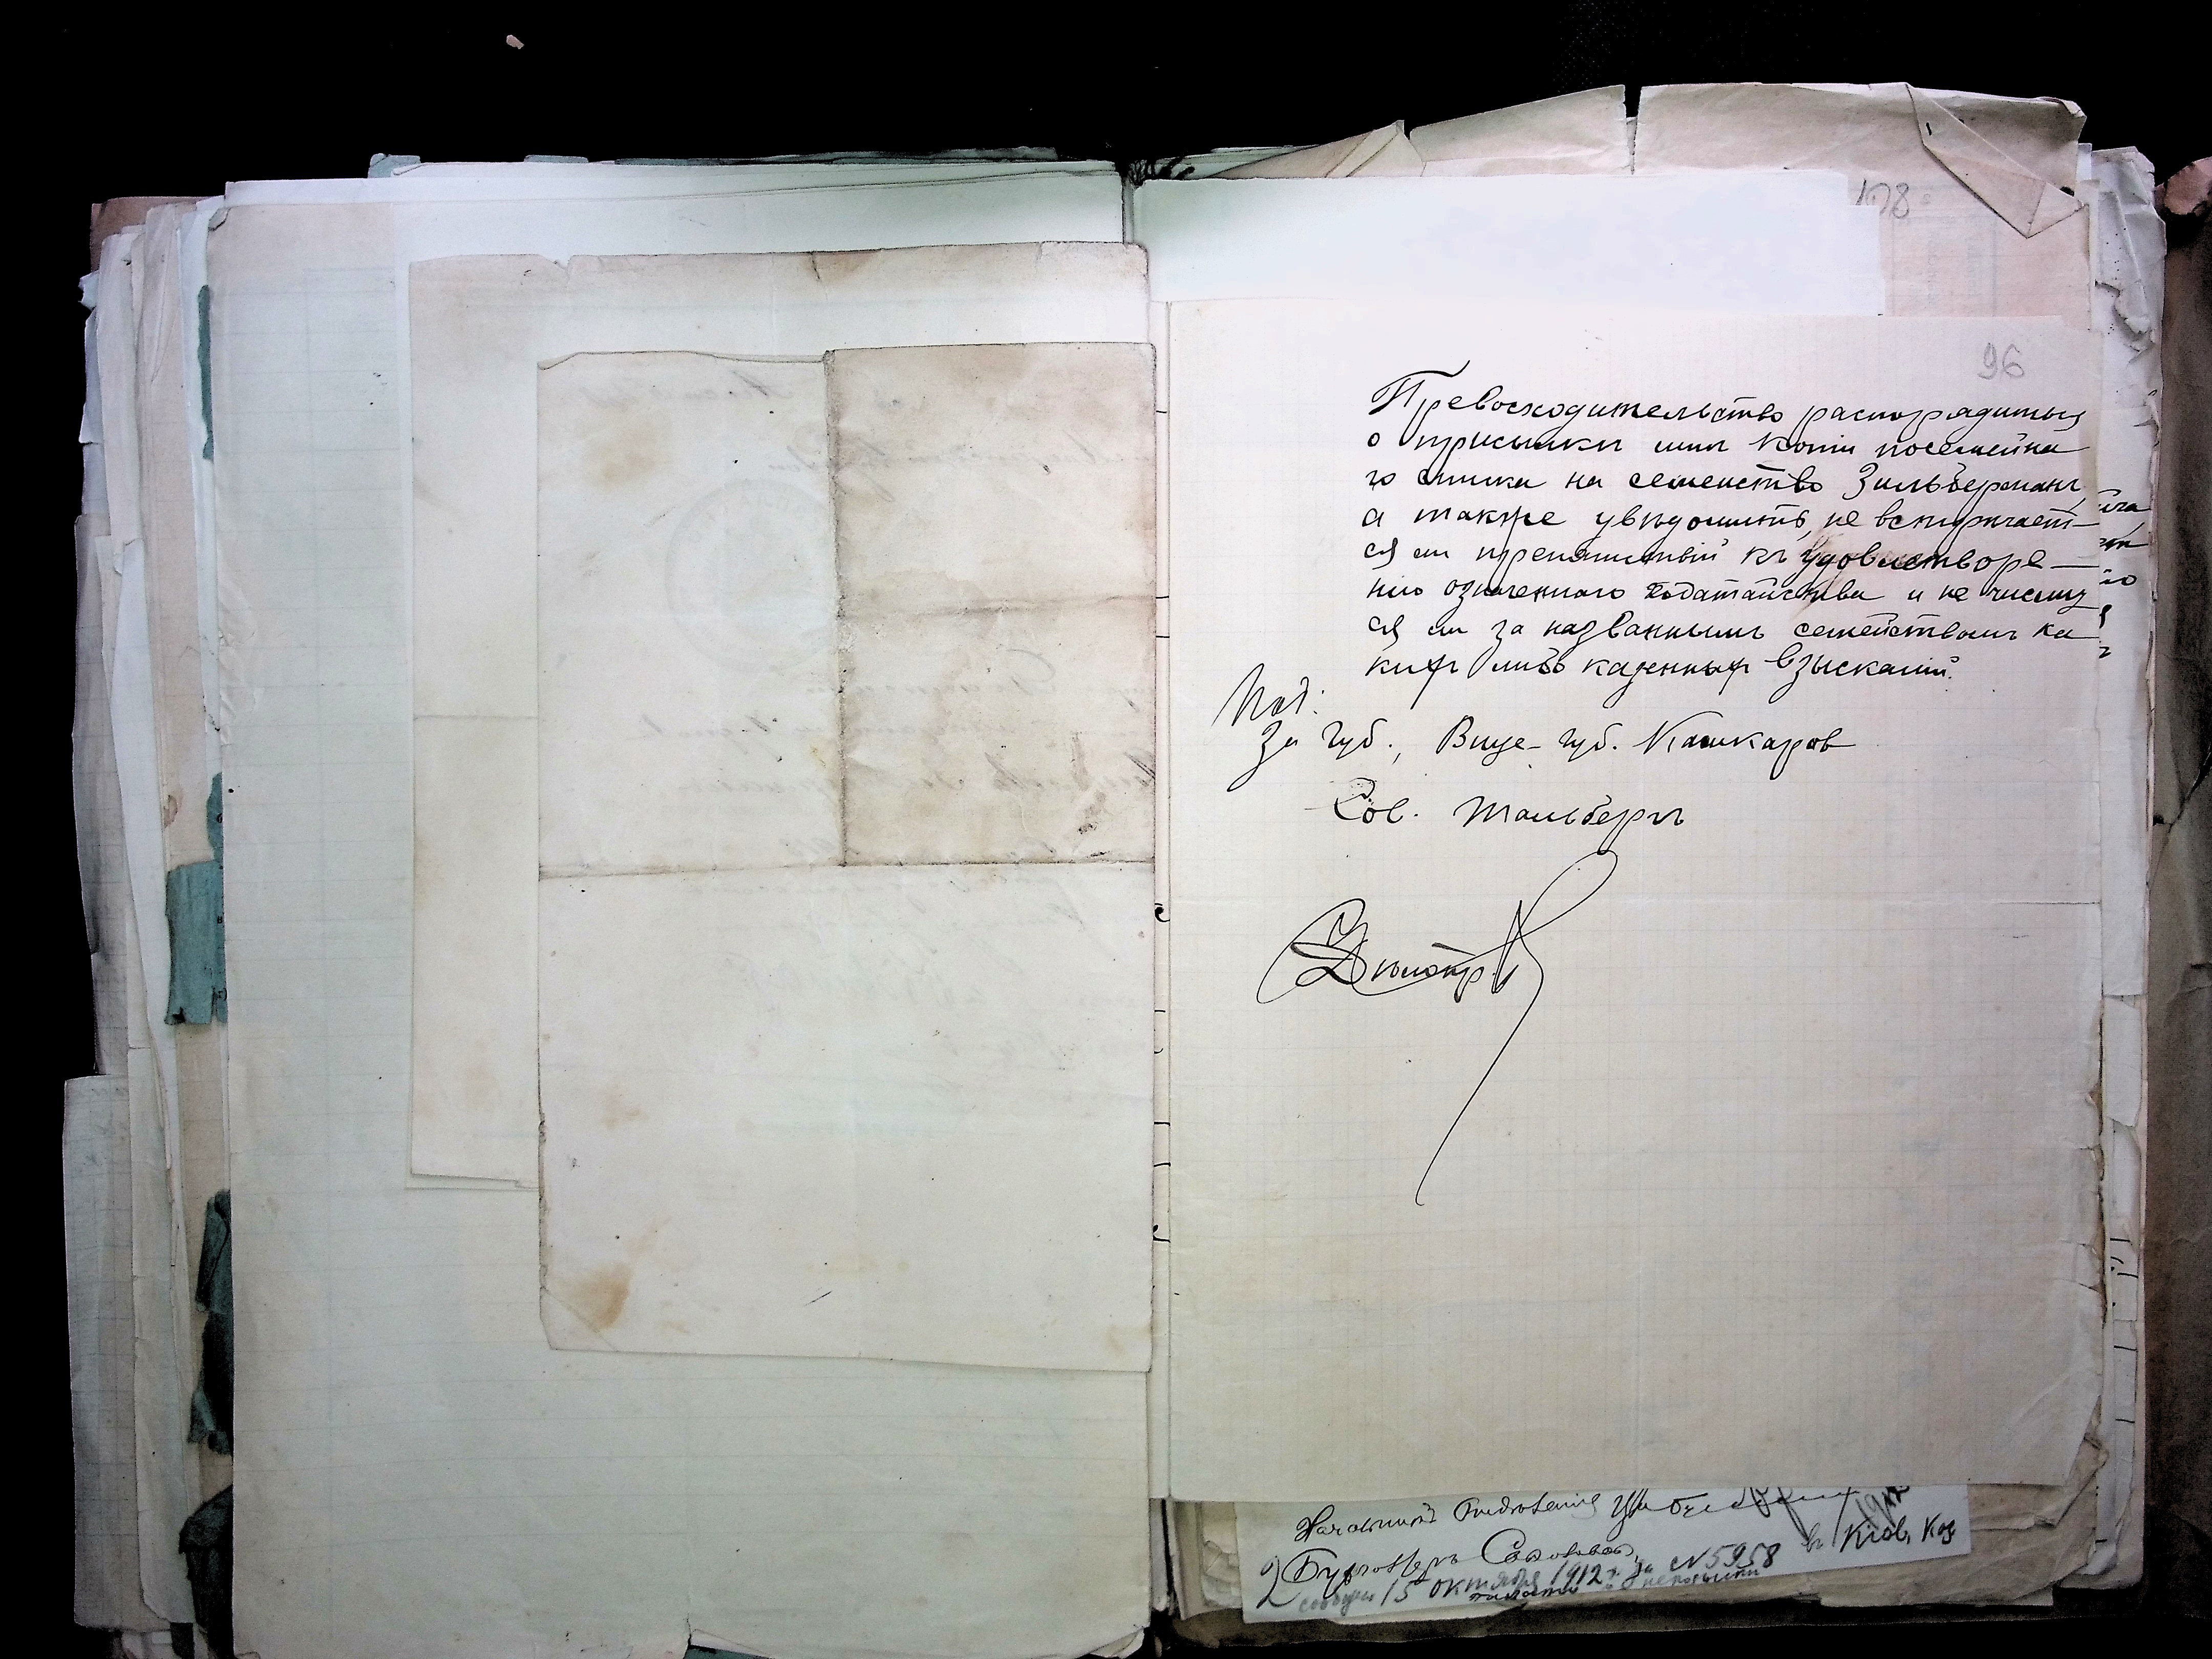 178
96
Превосходительство распорядиться
о присылкѣ мнѣ копіи посемейна
го списка на семейство Зильберманъ,
а также увѣдомить, не встрѣчает-
ся ли препятствій къ удовлетворе-
нію означеннаго ходатайства и не числит
ся ли за названнымъ семействомъ ка
кихъ либо казенныхъ взысканій.
Под:
За Губ., Вице-Губ. Кашкаров
Сов. Тальбергъ
Начальникъ Отдѣленія
Бухгалтеръ
15 октября 1912 г. за №5958 въ Кіев. Каз